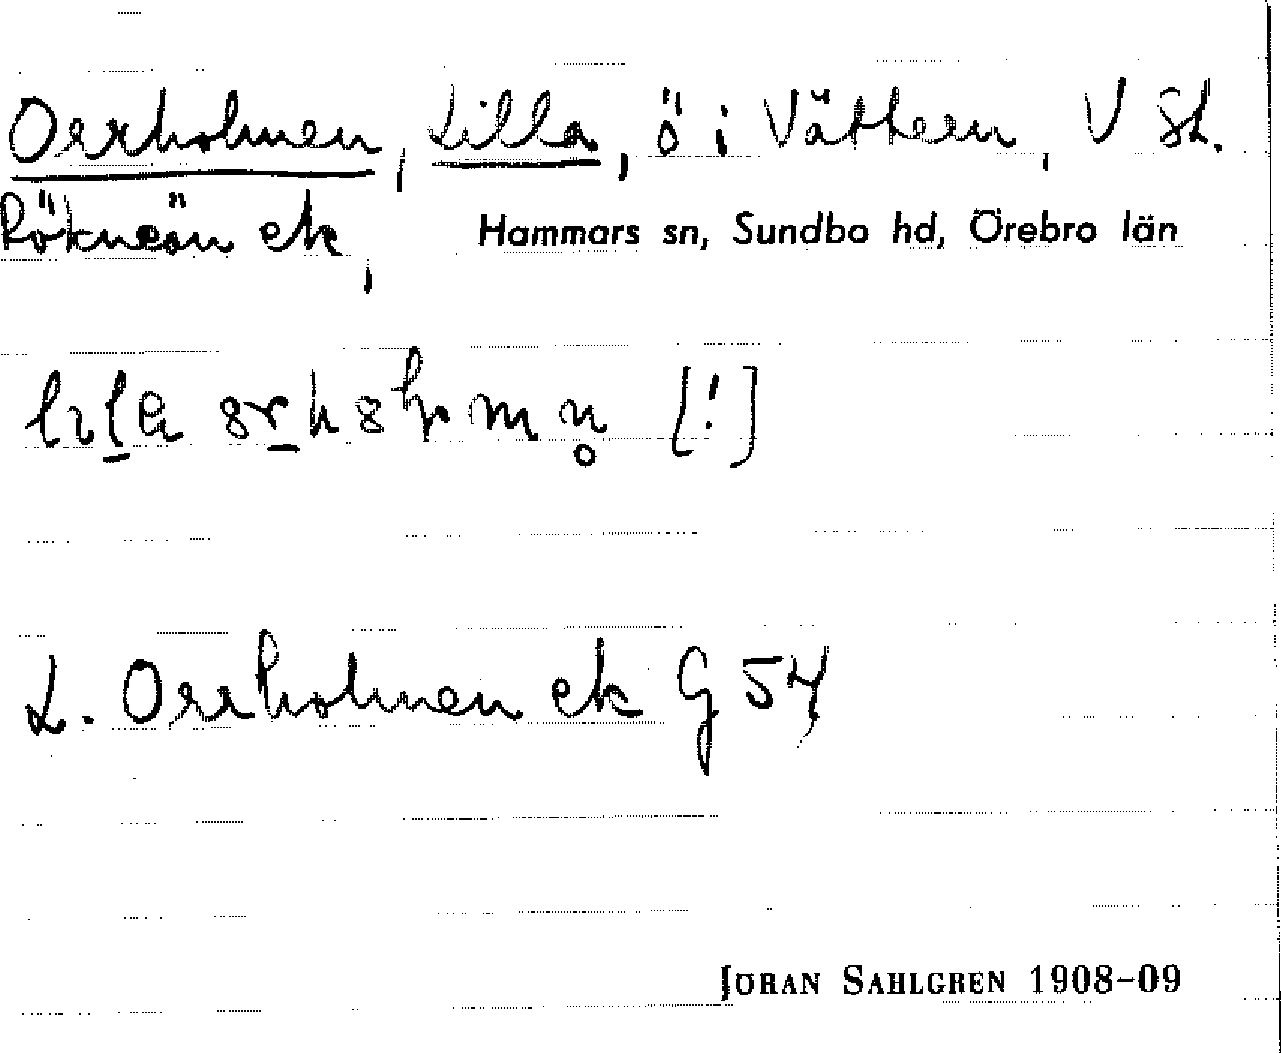 Orrholmen, Lilla, ö i Vättern, V St.
Rökneön ek, Hammars sn, Sundbo hd, Örebro län
[!]
L. Orrholmen ek G 54
JÖRAN SAHLGREN 1908–09